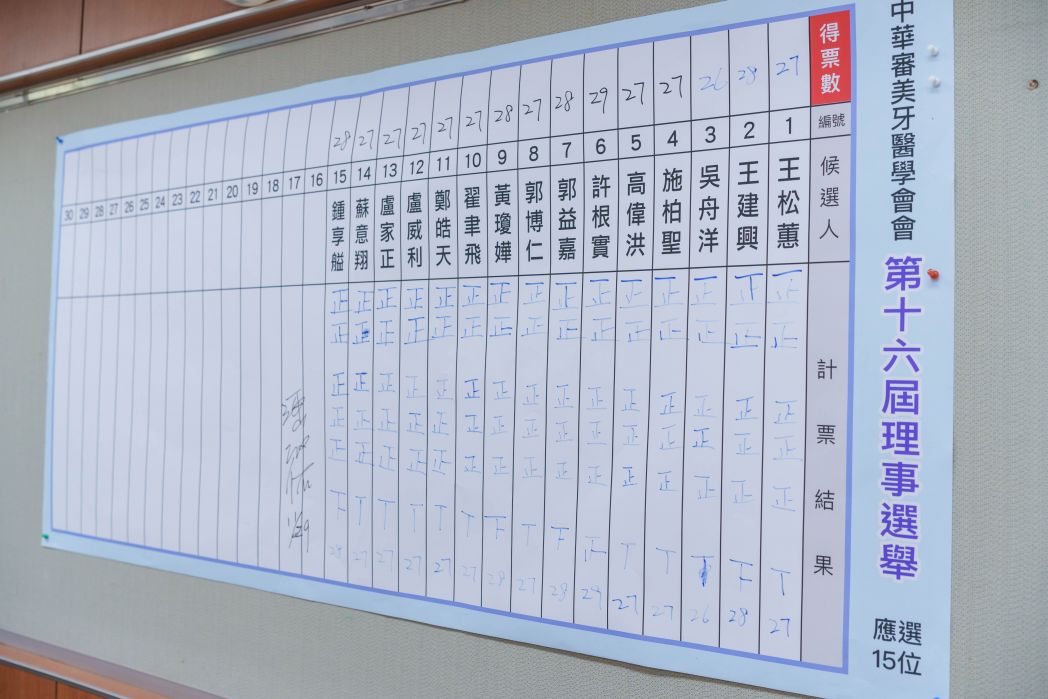 中華審美牙醫學會會
第十六屆理事選舉
應選
15位
得票數
編號
候選人
計票結果
27 1 王松蕙 正正正正正丅 27
28 2 王建興 正正正正正下 28
26 3 吳舟洋 正正正正正 26
27 4 施柏聖 正正正正正丅 27
27 5 高偉洪 正正正正正丅 27
29 6 許根實 正正正正正 29
28 7 郭益嘉 正正正正正下 28
27 8 郭博仁 正正正正正丅 27
28 9 黃瓊嬅 正正正正正下 28
27 10 翟聿飛 正正正正正丅 27
27 11 鄭皓天 正正正正正丅 27
27 12 盧威利 正正正正正丅 27
27 13 盧家正 正正正正正丅 27
27 14 蘇意翔 正正正正正丅 27
28 15 鍾享艗 正正正正正下 28
16
17
18
19
20
21
22
23
24
25
26
27
28
29
30